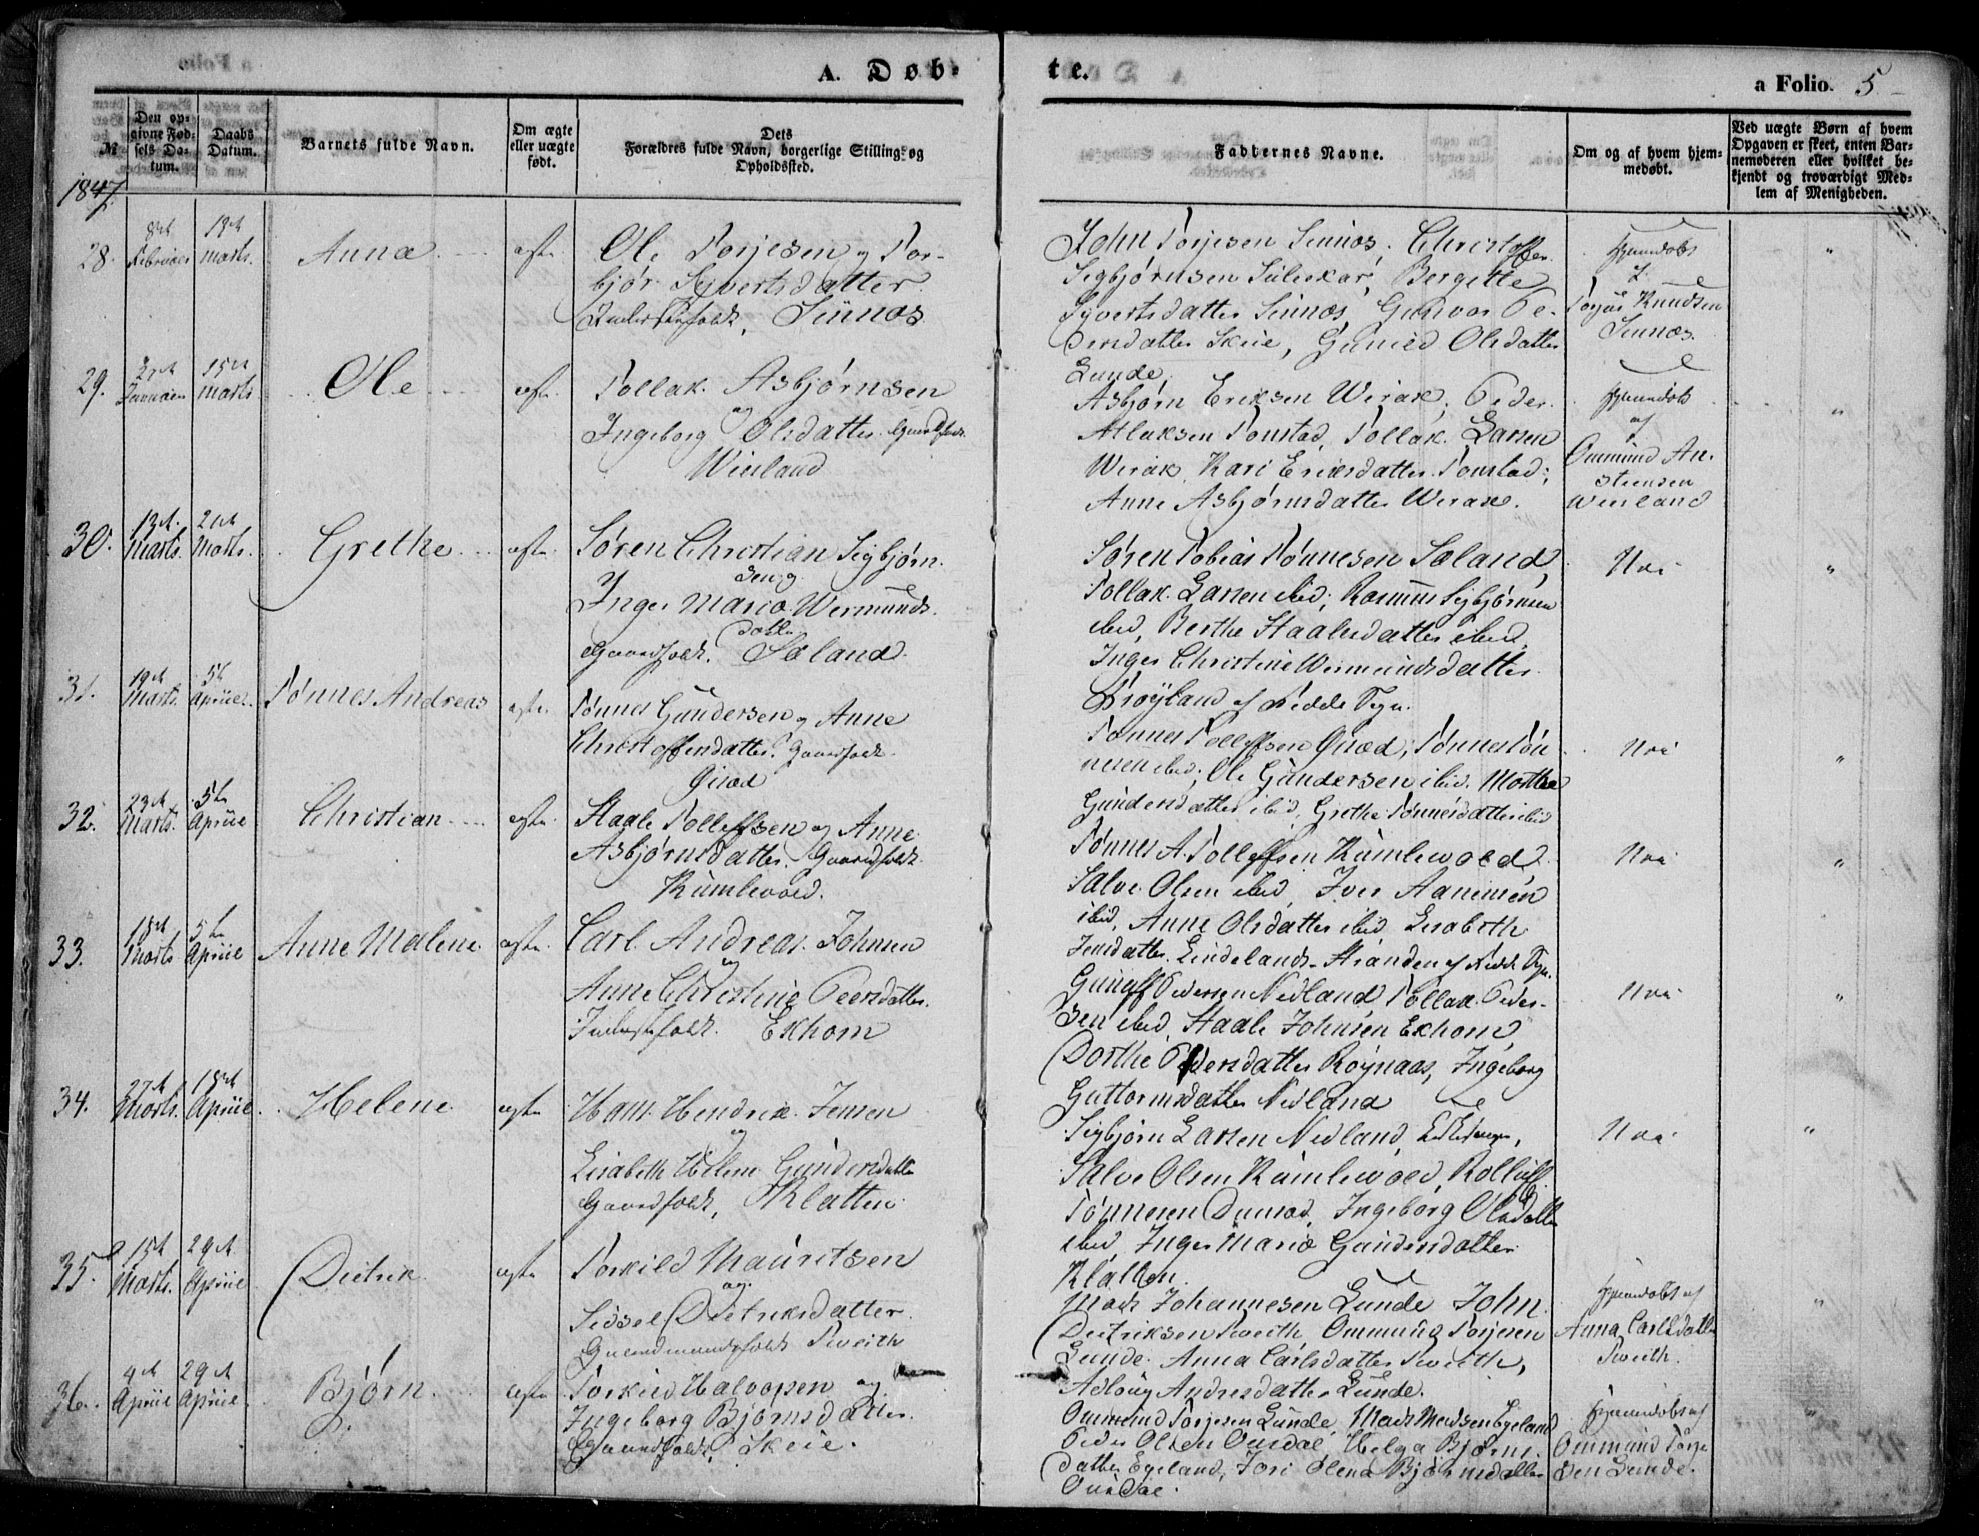 A. Døb-
te.
a Folio. 5
№
Den op-
givne Fød-
sels Da-
tum.
Daabs
Datum.
Barnets fulde Navn.
Om ægte
eller uægte
født.
Dets
Forældres fulde Navn, borgerlige Stilling og
Opholdssted.
Faddernes Navne.
Om og af hvem hjem-
medøbt.
Ved uægte Børn af hvem
Opgaven er skeet, enten Bar-
nemoderen eller hvilket be-
kjendt og troværdigt Med-
lem af Menigheden.
1847.
28.
Februar
Marts.
Anna
ægte
Ole Torjesen og Tor-
bjør Sivertsdatter
Sinnes
John Torjesen Sinnes. Christoffer
Sigbjørnsen Suleskar, Bergitte
Syvertsdatter Sinnes, Gunvor Pe-
dersdatter Skeie, Gunild Olsdatter
Lunde
Hjemmedøbt
Knudsen
Sinnes
29.
Januar
15de
Marts
Ole
ægte
Tollak Asbjørnsen
og
Ingeborg Olsdatter Gaardfolk
Wieland
Asbjørn Eriksen Wirak, Peder
Atlaksen Tonstad, Tollak Larsen
Wirak, Kari Eriksdatter Tonstad,
Anne Asbjørnsdatter Wirak.
Hjemmedøbt
af
Ommund
30.
13de
Marts.
21de
Marts.
Grethe
ægte
Søren Christian Sigbjørn-
sen og
Inger Maria Wermunds-
datter
Gaardfolk. Sæland
Søren Tobias Tønnesen Sæland,
Tollak Larsen ibid, Rasmus Sigbjørnsen
ibid, Berthe Staalesdatter ibid,
Inger Christine Wermundsdatter
Frøyland af
Nei
31.
19de
Marts.
5te
April.
Tønnes Andreas
ægte
Tønnes Gundersen og Anne
Christoffersdatter. Gaardfolk
Tønnes Tolleffsen Tønnes Tøn-
nesen ibid, Ole Gundersen ibid. Marthe
Gundersdatter ibid, Grethe Tønnesdatter ibid
Nei
32.
23de
Marts.
5te
April
Christian
ægte
Staale Tolleffsen og Anne
Asbjørnsdatter. Gaardfolk
Rumlewold.
Tønnes A. Tolleffsen Rumlewold
Salve Olsen ibid, Iver
ibid, Anne Olsdatter ibid, Lisabeth
Jensdatter
Nei
33.
18de
Marts
5te
April
Anne Malene
ægte
Carl Andreas Johnsen
og
Anne Christine Pedersdatter.
Ekhom
Pedersen Nedland, Tollak Peder-
sen ibid, Staale Johnsen Ekhom,
Dorthe Pedersdatter Røynaas, Ingeborg
Guttormsdatter Nedland
Nei
34.
27de
Marts.
18de
April.
Helene
ægte
Hans Hendrik Jensen
og
Lisabeth Helene Gundersdatter
Gaardfolk, Klatten
Sigbjørn Larsen Nedland,
Salve Olsen Rumlewold,
Tønnesen Ingeborg Olsdatter
ibid, Inger Maria Gundersdatter
Klatten
Nei
35.
15de
Marts.
29de
April
Dietrik
ægte
Torkild Mauritsen
og
Sissel Dietriksdatter
Gaardmandsfolk Tveith
Mads Johannesen Lunde, John
Dietriksen Tveith, Ommund Torjesen
Lunde, Anna Carlsdatter Tveith,
Andresdatter Lunde.
Hjemmedøbt af
Anna Carlsdatter
Tveith.
36.
9de
April
29de
April.
Bjørn
ægte
Torkild Halvorsen og
Ingeborg Bjørnsdatter.
Gaardfolk, Skeie.
Ommund Torjesen Lunde, Mads Madsen Egeland
Peder Olsen Ousdal, Helga Bjørns-
datter Egeland, Jori Olena Bjørnsdatter
Ousdal.
Hjemmedøbt af
Ommund Torje-
sen Lunde.